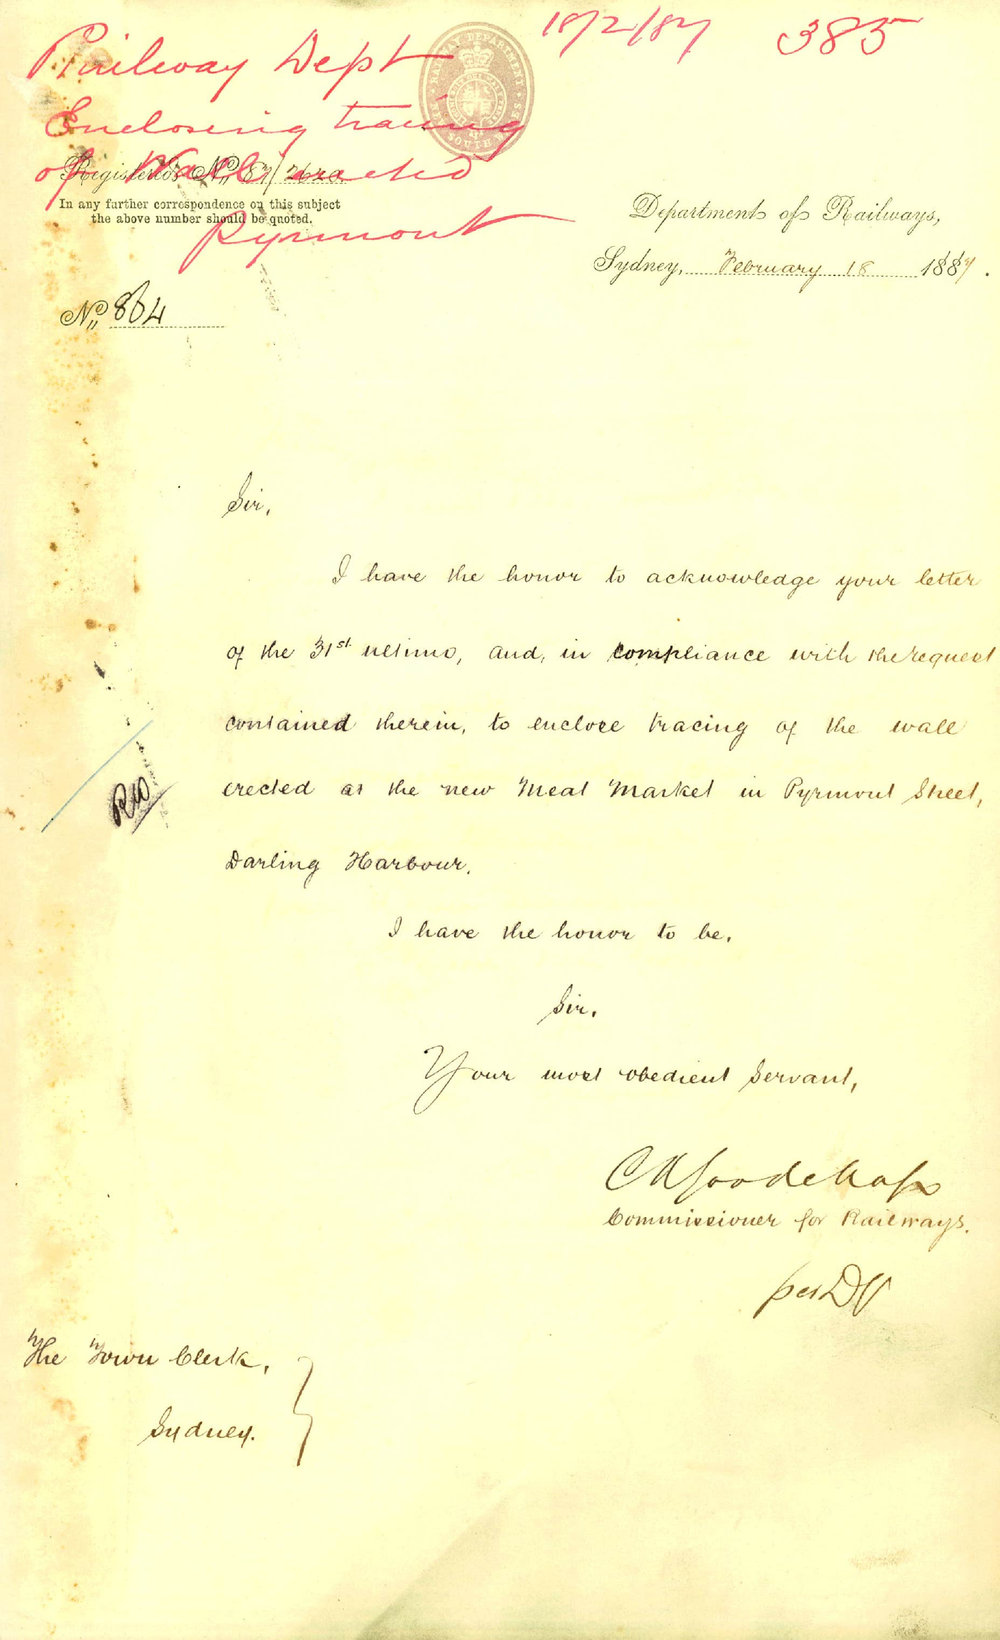 18/2/87 385
Railway Dept
Enclosing tracing
of Wall erected
Pyrmont
RAILWAY DEPARTMENT
Registered No. 87/2620
In any further correspondence on this subject
the above number should be quoted.
Department of Railways,
Sydney, February 18 1887.
No. 864
Sir,
I have the honor to acknowledge your letter
of the 31st ultimo, and, in compliance with the request
contained therein, to enclose tracing of the wall
erected at the new Meat Market in Pyrmont Street,
Darling Harbour.
I have the honor to be,
Sir,
Your most obedient Servant,
Ch A Goodchap
Commissioner for Railways.
per DV
The Town Clerk,
Sydney.